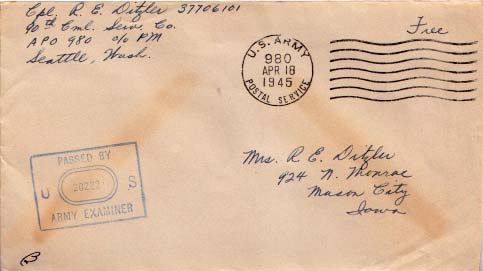 Cpl. R. E. Ditzler 37706101
90th Cml. Serv. Co.
APO 980 c/o PM
Seattle, Wash.
U.S. ARMY
980
APR 18
1945
POSTAL SERVICE
Free
PASSED BY
U S
ARMY EXAMINER
Mrs. R. E. Ditzler
924 N. Monroe
Mason City
Iowa